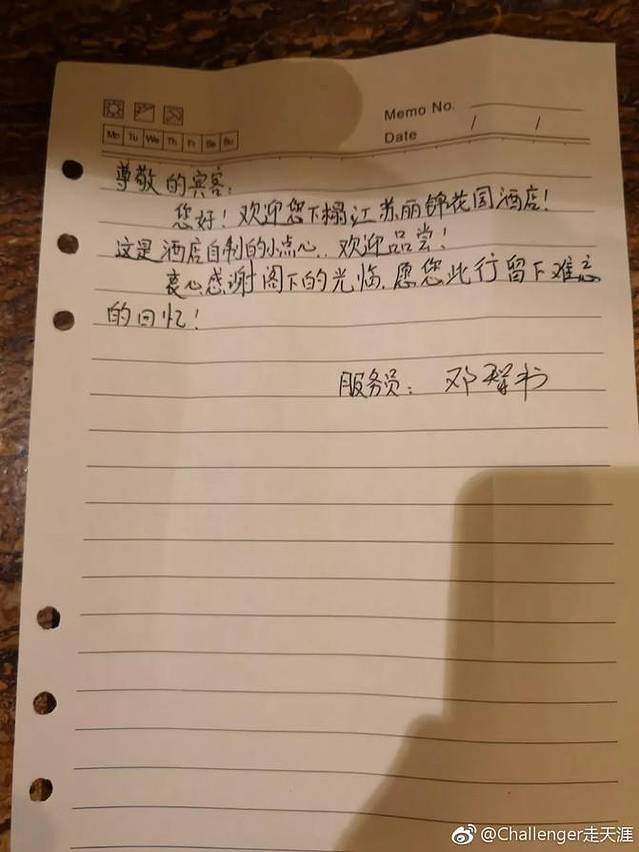 Memo No.
Date / /
Mo Tu We Th Fr Sa Su
尊敬的宾客:
您好!欢迎您下榻江苏丽锦花园酒店!
这是酒店自制的小点心,欢迎品尝!
衷心感谢阁下的光临,愿您此行留下难忘
的回忆!
服务员: 邓
@Challenger走天涯